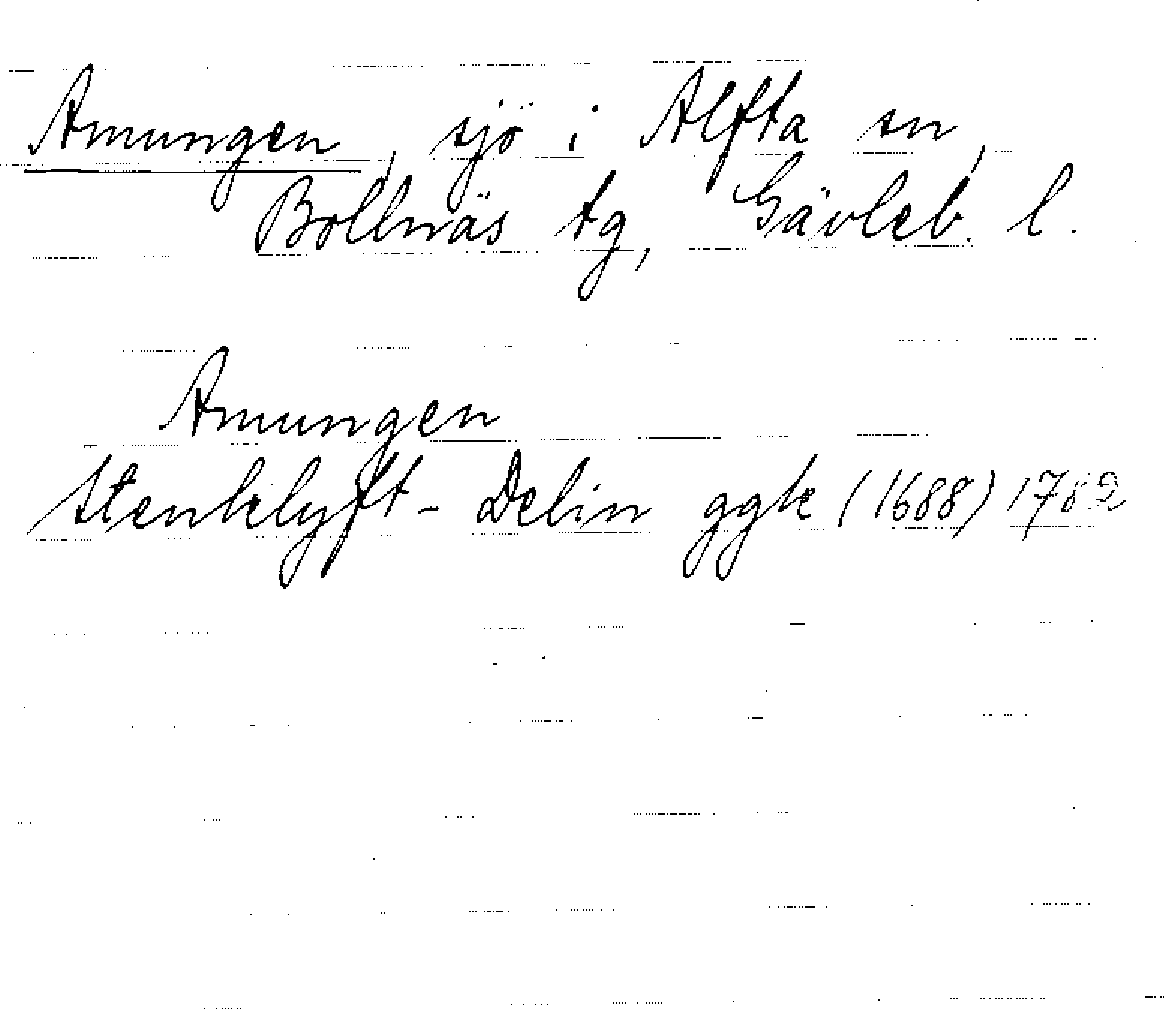 Amungen, sjö i Alfta sn,
Bollnäs tg, Gävleb. l.
Amungen
Stenklyft-Delin ggk (1688) 1782